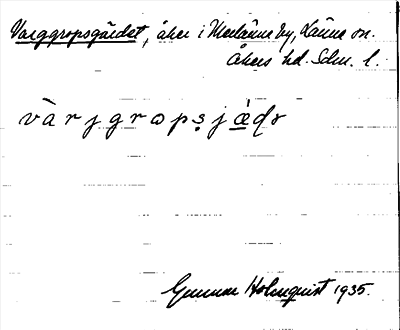 Varggropsgärdet, åker i Merlänna by, Länna sn.
Åkers hd. Sdm. l.
vàrjgropṣjä̀dɾ
Gunnar Holmquist 1935.